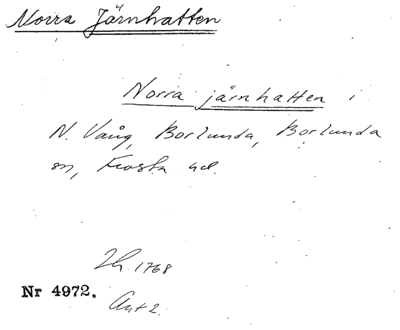 Norra Järnhatten
Norra järnhatten i
N. Vång, Borlunda, Borlunda
sn, Frosta hd.
Lh. 1768
Nr 4972.
Akt 2.